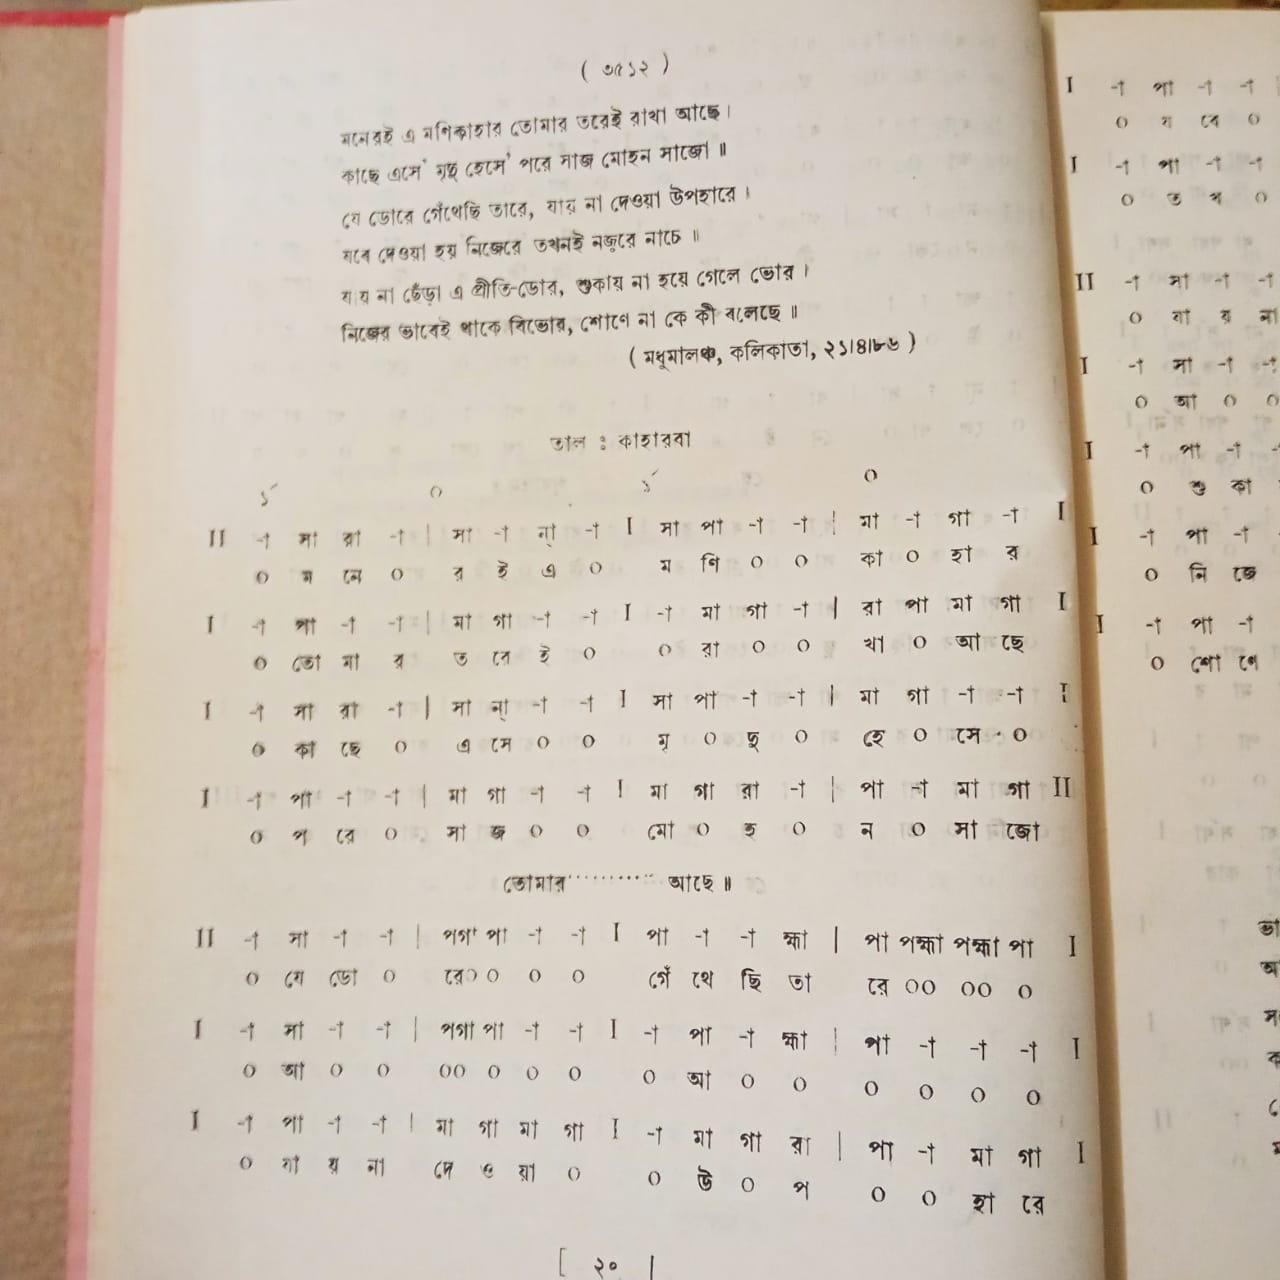 ( ৩৫১২ )
মনেরই এ মণিকাহার তোমার তরেই রাখা আছে ।
কাছে এসে' মৃদু হেসে' পরে সাজ মোহন সাজো ॥
যে ডোরে গেঁথেছি তারে, যায় না দেওয়া উপহারে ।
যবে দেওয়া হয় নিজেরে তখনই নজরে নাচে ॥
যায় না ছেঁড়া এ প্রীতি-ডোর, শুকায় না হয়ে গেলে ভোর ।
নিজের ভাবেই থাকে বিভোর, শোণে না কে কী বলেছে ॥
( মধুমালঞ্চ, কলিকাতা, ২১।৪।৮৬ )
তাল : কাহারবা
১´ ০ ১´ ০
II -া সা রা -া | সা -া ন্া -া I সা পা -া -া | মা -া গা -া I
০ ম নে ০ র ই এ ০ ম ণি ০ ০ কা ০ হা র
I -া পা -া -া | মা গা -া -া I -া মা গা -া | রা পা মা গা I
০ তো মা র ত রে ই ০ ০ রা ০ ০ খা ০ আ ছে
I -া সা রা -া | সা ন্া -া -া I সা পা -া -া | মা গা -া -া I
০ কা ছে ০ এ সে ০ ০ মৃ ০ দু ০ হে ০ সে ০
I -া পা -া -া | মা গা -া -া I মা গা রা -া | পা -া মা গা II
০ প রে ০ সা জ ০ ০ মো ০ হ ০ ন ০ সা জো
তোমার ........... আছে ॥
II -া সা -া -া | পগা পা -া -া I পা -া -া হ্মা | পা পহ্মা পহ্মা পা I
০ যে ডো ০ রে০ ০ ০ ০ গেঁ থে ছি তা রে ০০ ০০ ০
I -া সা -া -া | পগা পা -া -া I -া পা -া হ্মা | পা -া -া -া I
০ আ ০ ০ ০০ ০ ০ ০ ০ আ ০ ০ ০ ০ ০ ০
I -া পা -া -া | মা গা মা গা I -া মা গা রা | পা -া মা গা I
০ যা য় না দে ও য়া ০ ০ উ ০ প ০ ০ হা রে
[ ২০ ]
I -া পা -া -া
০ য বে ০
I -া পা -া -া
০ ত খ ০
II -া সা -া -া
০ যা য় না
I -া সা -া -া
০ আ ০ ০
I -া পা -া
০ শু কা
I -া পা -া
০ নি জে
I -া পা -া
০ শো ণে